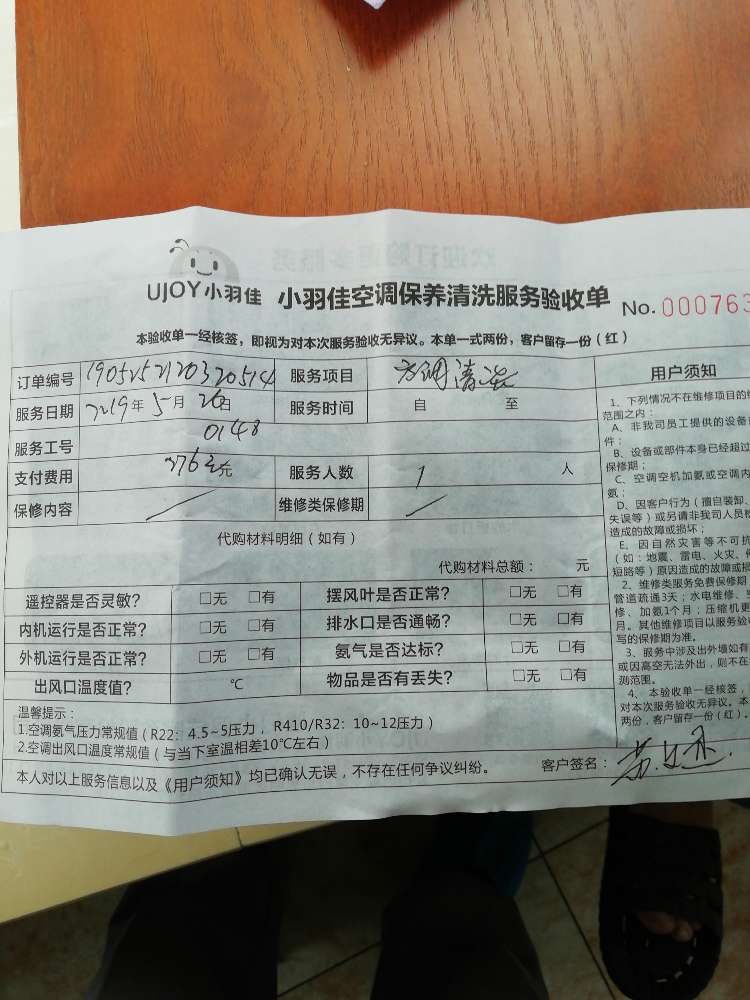 UJOY小羽佳 小羽佳空调保养清洗服务验收单 No.000763
本验收单一经核签，即视为对本次服务验收无异议。本单一式两份，客户留存一份（红）
订单编号 1905252120320514 服务项目 空调清洗
服务日期 2019年5月26日 服务时间 自 至
服务工号 0148
支付费用 276元 服务人数 1 人
保修内容 维修类保修期
代购材料明细（如有）
代购材料总额： 元
遥控器是否灵敏? □无 □有 摆风叶是否正常? □无 □有
内机运行是否正常? □无 □有 排水口是否通畅? □无 □有
外机运行是否正常? □无 □有 氨气是否达标? □无 □有
出风口温度值? ℃ 物品是否有丢失? □无 □有
温馨提示：
1.空调氨气压力常规值（R22：4.5~5压力，R410/R32：10~12压力）
2.空调出风口温度常规值（与当下室温相差10℃左右）
本人对以上服务信息以及《用户须知》均已确认无误，不存在任何争议纠纷。 客户签名：
用户须知
1、下列情况不在维修项目的
范围之内：
A、非我司员工提供的设备
件；
B、设备或部件本身已经超过
保修期；
C、空调空机加氨或空调内
氨；
D、因客户行为（擅自装卸、
失误等）或另请非我司人员
造成的故障或损坏；
E、因自然灾害等不可抗
（如：地震、雷电、火灾、
短路等）原因造成的故障或损
2、维修类服务免费保修期
管道疏通3天；水电维修、
修、加氨1个月；压缩机更
月。其他维修项目以服务验收
写的保修期为准。
3、服务中涉及出外墙如有
或因高空无法外出，则不在
测范围。
4、本验收单一经核签，
对本次服务验收无异议。本
两份，客户留存一份（红）。